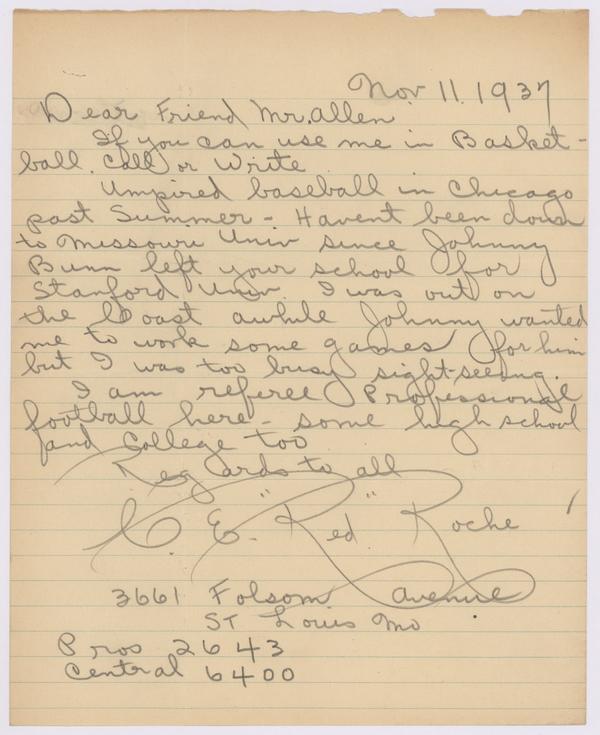 Nov. 11. 1937
Dear Friend Mr. Allen
If you can use me in Basket-
ball. Call or Write
Umpired baseball in Chicago
past Summer - Havent been down
to Missouri Univ since Johnny
Bunn left your school for
Stanford Univ. I was out on
the Coast awhile Johnny wanted
me to work some games for him
but I was too busy sight-seeing.
I am referee Professional
football here - some high school
and College too
Regards to all
C. E. "Red" Roche
3661 Folsom Avenue
ST Louis Mo
Pros 2643
Central 6400